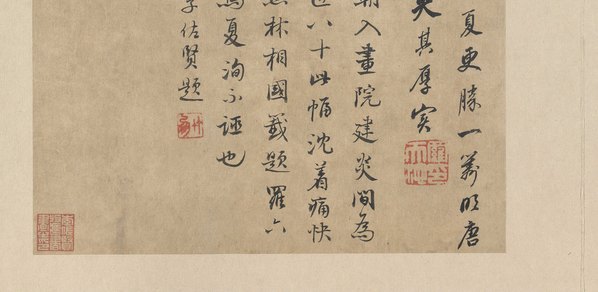 夏更勝一籌明唐
其厚實
朝入畫院建炎間為
八十此幅沈着痛快
林相國籖題羅六
夏洵不誣也
佐賢題